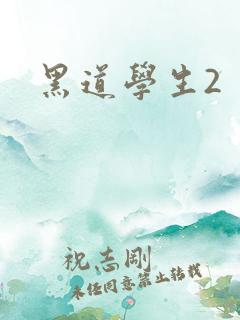 黑道學生2
祝志剛
未經同意禁止轉載